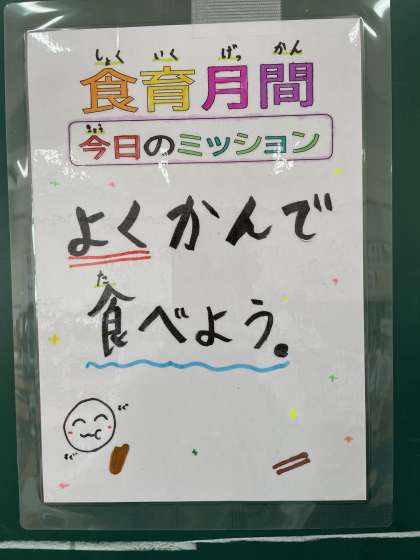 しょくいくげっかん
食育月間
きょう
今日のミッション
よくかんで
た
食べよう。